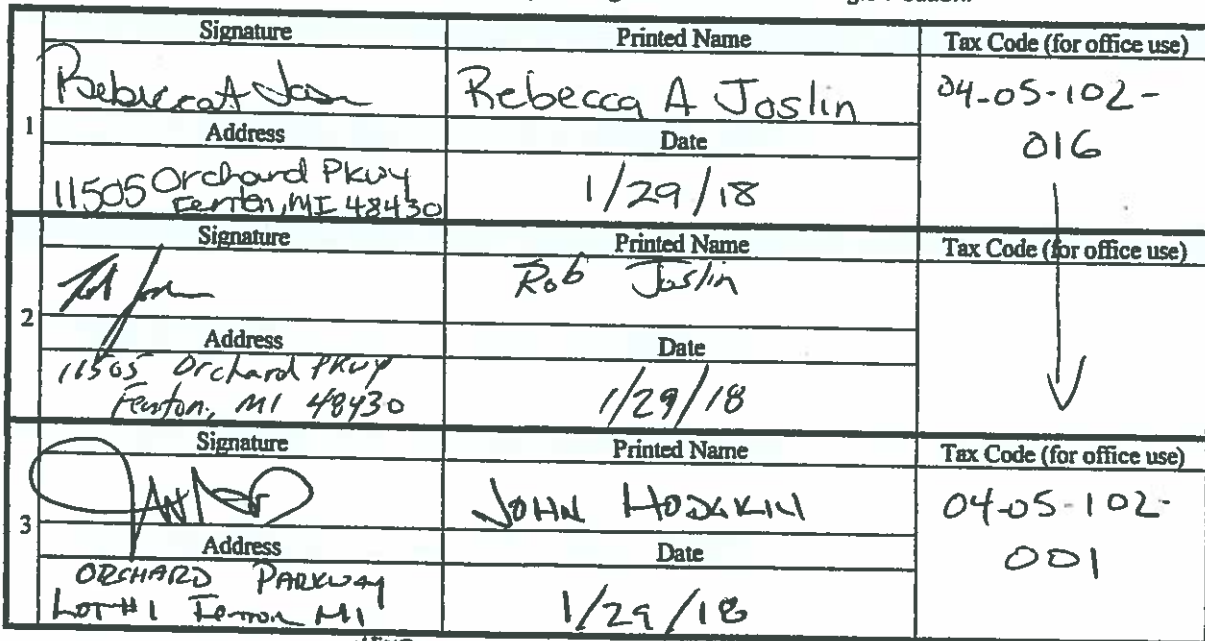 Signature Printed Name Tax Code (for office use)
Rebecca A Joslin 04-05-102-
1 Address Date 016
11505 Orchard Pkwy 1/29/18
Fenton, MI 48430
Signature Printed Name Tax Code (for office use)
Rob Joslin
2 Address Date
11505 Orchard Pkwy 1/29/18
Fenton, MI 48430
Signature Printed Name Tax Code (for office use)
JOHN HODGKIN 04-05-102-
3 Address Date 001
ORCHARD PARKWAY 1/29/18
LOT #1 Fenton MI